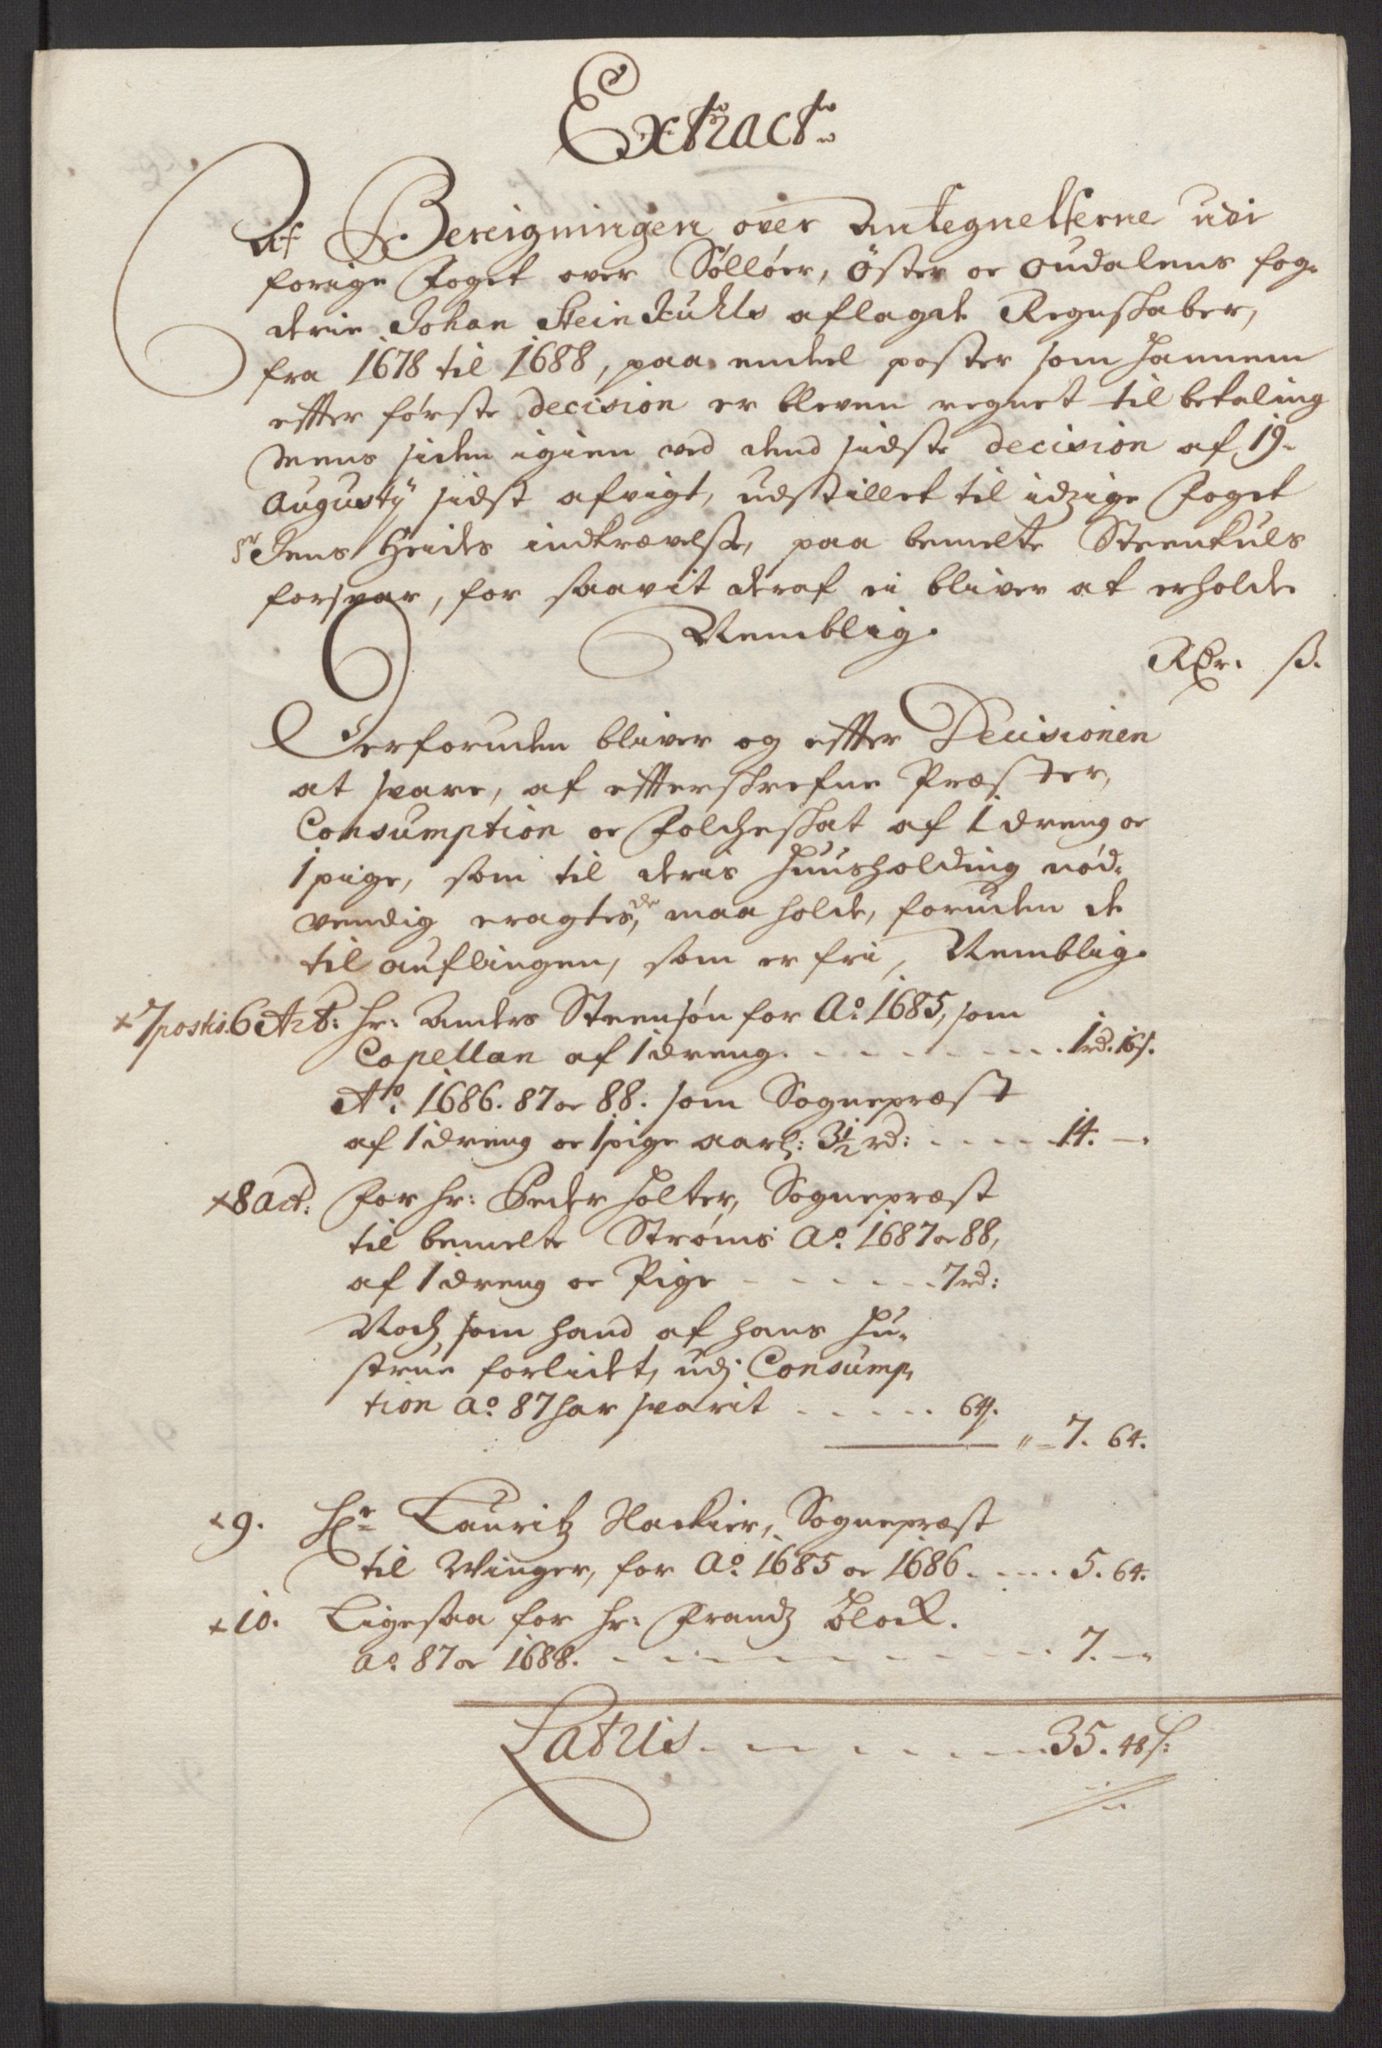 Extract
Af Bereigningen over Antegnelserne udi
forige Foget over Solløer, Öster oc Oudalens fog-
derie Johan SteinKuhls aflagde Regnskaber,
fra 1678 til 1688, paa endeel poster som hannem
effter første decision er bleven regnet til betaling
Mens siden igien ved dend sidste decision af 19.
Augusty sidst afvigt, udstillet til idzige Foget
Sr Jens Heides indkrævelse, paa bemelte Steenkuls
forsvar, for saavit deraf ei bliver at erholde
Nemblig.
Rdr. s.
Derforuden bliver og effter Decisionen
at svare, af effterskrefne Præster,
Consumption oc Folcheskat af 1 dreng oc
1 pige, som til deris Huusholding nød-
vendig eragtes, de maa holde, foruden de
til auflingen, som er fri, Nemblig.
x 7 postis 6 Art: hr: Anders Steensøn for Ao. 1685, som
Capellan af 1 dreng. . . . . . . 1 rd. 16 s.
Ao. 1686. 87 oc 88. som Sognepræst
af 1 dreng oc 1 pige aarl: 3½ rd: . . . . 14. —
x 8 Art: For hr: Peder Holter, Sognepræst
til bemelte Strøms Ao. 1687 oc 88,
af 1 dreng oc Pige . . . . . . 7 rd:
Noch som hand af hans Hu-
strue forlidet, udj Consump-
tion Ao. 87 har svarit . . . . . 64 s.
" — 7. 64.
x 9. Hr Lauritz Nackier, Sognepræst
til Winger, for Ao. 1685 oc 1686. . . . . 5. 64.
x 10. Ligesaa for hr: Frandz Block.
Ao. 87 oc 1688. . . . . . . . . . . 7. —
Latris. . . . . . . 35. 48 s: